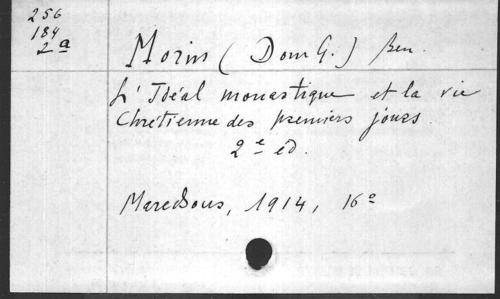 256
184
2a
Morin (Dom G.) Ben.
L'Idéal monastique et la vie
Chrétienne des premiers jours.
2e éd.
Maredsous, 1914, 16°